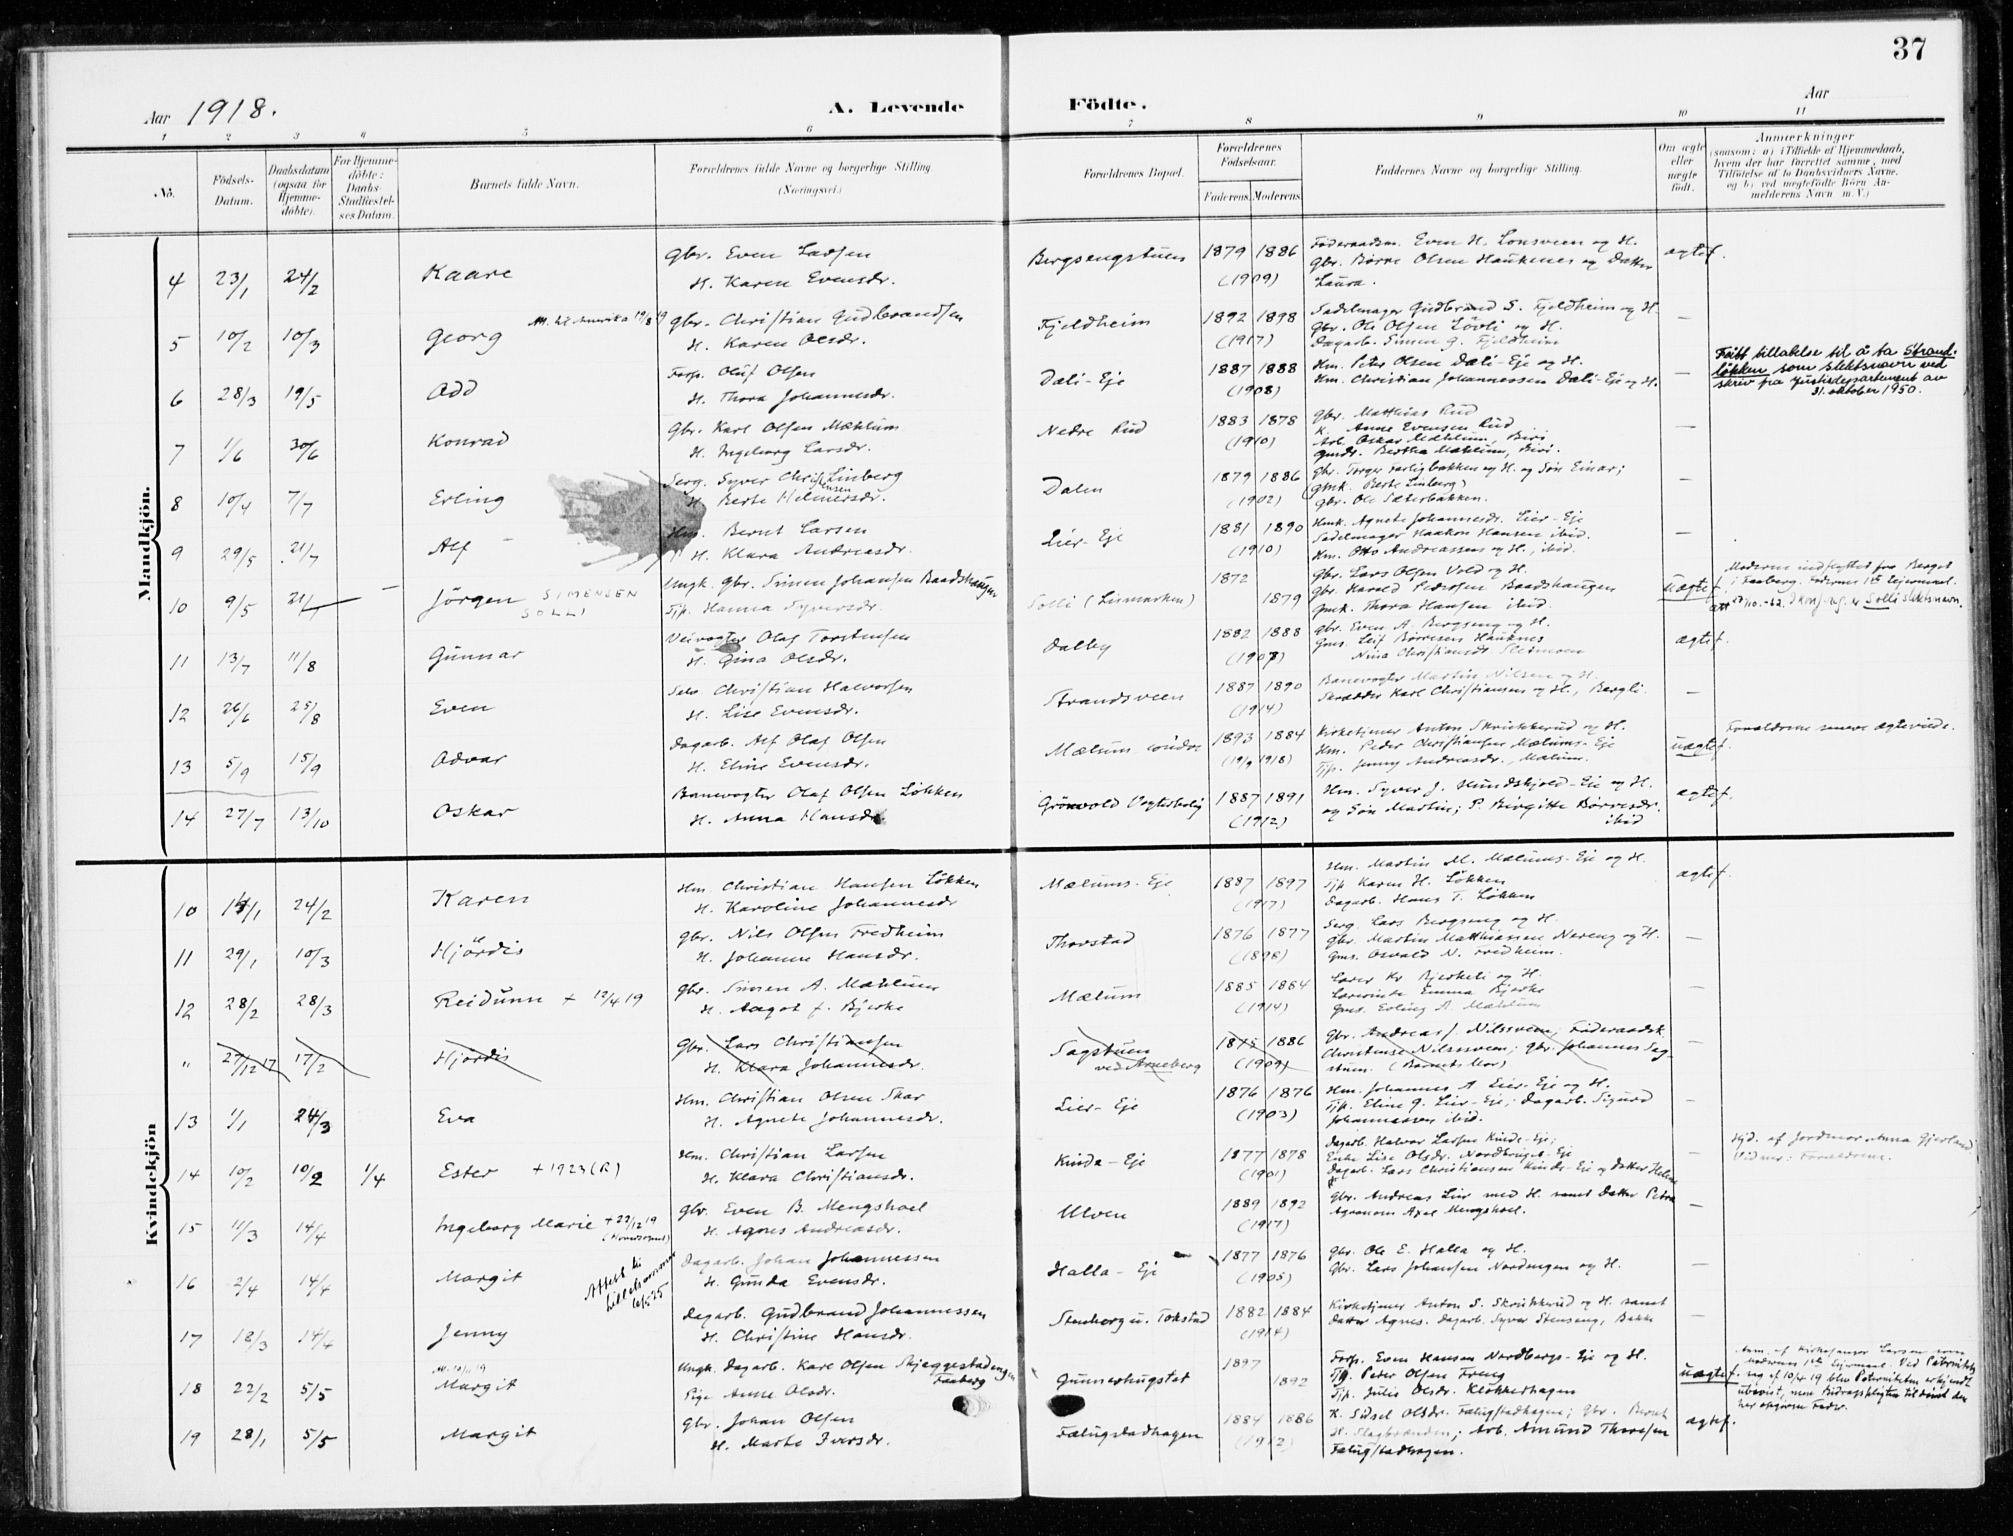 37
Aar 1918.
A. Levende Födte.
Aar
1 2 3 4 5 6 7 8 9 10 11
No.
Födsels-Datum.
Daabsdatum (ogsaa for Hjemme-döbte).
For Hjemme-döbte: Daabs-Stadfæstel-ses Datum.
Barnets fulde Navn.
Forældrenes fulde Navne og borgerlige Stilling (Næringsvei.)
Forældrenes Bopæl.
Forældrenes Födselsaar.
Faderens. Moderens.
Faddernes Navne og borgerlige Stilling.
Om ægte eller uægte födt.
Anmærkninger
(saasom: a) i Tilfælde af Hjemmedaab, hvem der har forrettet samme, med Tilföielse af to Daabsvidners Navne, og b) ved uægtefödte Börn An-melderens Navn m.V.)
Mandkjön.
4 23/1 24/2 Kaare Gbr. Even Larsen Bergsengstuen 1879 1886 Föderaadsm. Even H. Lonsveen og H. ægtef.
H. Karen Evensdr. (1909) Gbr. Börre Olsen Haukenes og Datter
Laura.
5 10/2 10/3 Georg Gbr. Christian Gudbrandsen Fjeldheim 1892 1898 Sadelmager Gudbrand S. Fjeldheim og H. —
H. Karen Olsdr. (1917) Gbr. Ole Olsen Lövli og H.
Dagarb. Simen G. Fjeldheim
6 28/3 19/5 Odd Forp. Oluf Olsen Dali-Eje 1887 1888 Hm. Peter Olsen Dali-Eje og H. —
H. Thora Johannesdr. (1908) Hm. Christian Johannessen Dali-Eje og H.
Fått tillatelse til å ta Strand-
løkken som slektsnavn ved
skriv fra Justisdepartement av
31. oktober 1950.
7 1/6 30/6 Konrad Gbr. Karl Olsen Mæhlum Nedre Rud 1883 1878 Gbr. Matthias Rud —
H. Ingeborg Larsdr. (1910) K. Anne Evensen Rud
Arb. Oskar Mæhlum, Biri
Gmdr. Bertha Mæhlum, Biri.
8 10/4 7/7 Erling Serg. Syver Christensen Linberg Dalen 1879 1886 og H. og Søn Einar; —
H. Berte Helmersdr. (1902) (Gmk. Berte Linberg)
Gbr. Ole Sæterbakken.
9 29/5 21/7 Alf Hm. Bernt Larsen Lier-Eje 1881 1890 Hmk. Agnete Johannesdr. Lier-Eje —
H. Klara Andreasdr. (1910) Sadelmager Haakon Hansen ibid.
Hm. Otto Andreassen og H., ibid.
10 9/5 21/7 Jörgen SIMENSEN SOLLI Ungk. Gbr. Simen Johansen Baadshaugen Solli (Lismarken) 1872 Gbr. Lars Olsen Vold og H. uægtef.
Tjp. Hanna Syversdr. 1879 Gbr. Harald Pedersen Baadshaugen
Gmk. Thora Hansen ibid.
Moderen indflyttet fra
i Faaberg. Faderens 1ste Leiermaal.
Solli slektsnavn.
11 13/7 11/8 Gunnar Veivogter Olaf Torstensen Dalby 1882 1888 Gbr. Even A. Bergseng og H. ægtef.
H. Gina Olsdr. Gms. Leif Børresen Hauknes
Nina Christiansdr.
12 26/6 25/8 Even Christian Halvorsen Strandsveen 1887 1890 Banevogter Martin Nilsen og H. —
H. Lise Evensdr. (1914) Skrædder Karl Christiansen og H., Bergli.
13 5/9 15/9 Odvar Dagarb. Alf Olaf Olsen Mælum söndre 1893 1884 Kirketjener Anton Skrukkerud og H. uægtef. Forældrene senere ægteviede.
H. Eline Evensdr. (1918) Hm. Peder Christiansen Mælums-Eje
Tjp. Jenny Andreasdr., Mælum.
14 27/7 13/10 Oskar Banevogter Olaf Olsen Løkken Grönvold Vogterbolig 1887 1891 Hm. Syver J. Hundskjold-Eie og H. ægtef.
H. Anna Hansdr. (1912) og Søn Martin; P. Birgitte Börresdr.
ibid
Kvindekjön
10 14/1 24/2 Karen Hm. Christian Hansen Løkken Mælums-Eje 1887 1897 Hm. Martin M. Mælums-Eje og H. ægtef.
H. Karoline Johannesdr (1917) Tjp Karen H. Løkken
Dagarb. Hans T. Løkken
11 29/1 10/3 Hjördis Gbr. Nils Olsen Fredheim Thorstad 1876 1877 Serg. Lars Bergseng og H. —
H. Johanne Hansdr. (1898) Gbr. Martin Matthiassen Nereng og H.
Gms. Osvald N. Fredheim.
12 28/2 28/3 Reidunn + 12/4 19 Gbr. Simen A. Mæhlum Mælum 1885 1884 Lærer Kr. Bjerkeli og H. —
H. Aagot f. Bjerke (1914) Lærerinde Emma Bjerke
Gms. Erling A. Mæhlum
" 27/12 17 17/2 Hjördis Gbr. Lars Christiansen Sagstuen 1875 1886 Gbr. Andreas J. Nilssveen; Föderaadsk. —
H. Klara Johannesdr. ved Arneberg (1909) Christense Nilssveen; Gbr. Johannes Sag-
stuen. (Barnets Mor)
13 1/1 24/3 Eva Hm. Christian Olsen Skar Lier-Eje 1876 1876 Hm. Johannes A. Lier-Eje og H. —
H. Agnete Johannesdr. (1903) Tjp. Eline G. Lier-Eje; Dagarb. Sigurd
Johannessen ibid.
14 10/2 10/2 1/4 Ester + 1923 (R) Hm. Christian Larsen Kinde-Eje 1877 1878 Dagarb. Halvor Larsen Kinde-Eje; —
H. Klara Christiansdr. (1901) Enke Lise Olsdr.
Dagarb. Lars Christiansen Kinde-Eje og Datter Helene
Hjd. af Jordmor Anna Gjerland
Vidner: Forældrene.
15 11/3 14/4 Ingeborg Marie + 22/12 19 Gbr. Even B. Mengshoel Ulven 1889 1892 Gbr. Andreas Lier med H. samt Datter Petra —
H. Agnes Andreasdr. (1917) Agronom Axel Mengshoel.
16 2/4 14/4 Margit Attest til Lillehammer Dagarb. Johan Johannessen Halla-Eje 1877 1876 Gbr. Ole E. Halla og H. —
H. Gunda Evensdr. (1905) Gbr. Lars Johansen Nordengen og H.
17 18/3 14/4 Jenny Dagarb. Gudbrand Johannessen Stenberg u. Tokstad 1882 1884 Kirketjener Anton S. Skrukkerud og H. samt —
H. Christine Hansdr. (1914) Datter Agnes. Dagarb. Syver Stenseng, Bakke
18 22/2 5/5 Margit Ungk. Dagarb. Karl Olsen Skjeggestadengen Gunnerhugstet 1897 Forp. Even Hansen Nordbergs-Eje og H. uægtef.
Faaberg
Pige Anne Olsdr. 1892 Tjg. Peder Olsen Freng
Tjp. Julie Olsdr. Klokkerhagen
Anm. af Kirkesanger Larsen som
Moderens 1ste Leiermaal. Ved Paternitets
sag af 10/4 19 blev Paterniteten erkjendt
ubevist, men Bidragspligten tilkjendt den
her opgivne Fader.
19 28/1 5/5 Margit Gbr. Johan Olsen Fælugstadhagen 1884 1886 K. Sidsel Olsdr. Fælugstadhagen; Gbr. Bernt ægtef.
H. Marte Iversdr. (1912) H. Slagbrenden; Arb. Amund Thoresen
Fælugstadhagen.